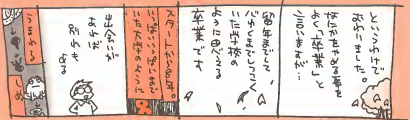 というわけで
おわりました。
なにかをやめる事を
よく「卒業」と
言いますが…
留年までして
いた学校の
ように思える
卒業です
スタートから8年。
いっぱいいっぱいまで
いた大学のように
出会いが
あれば
別れも
ある